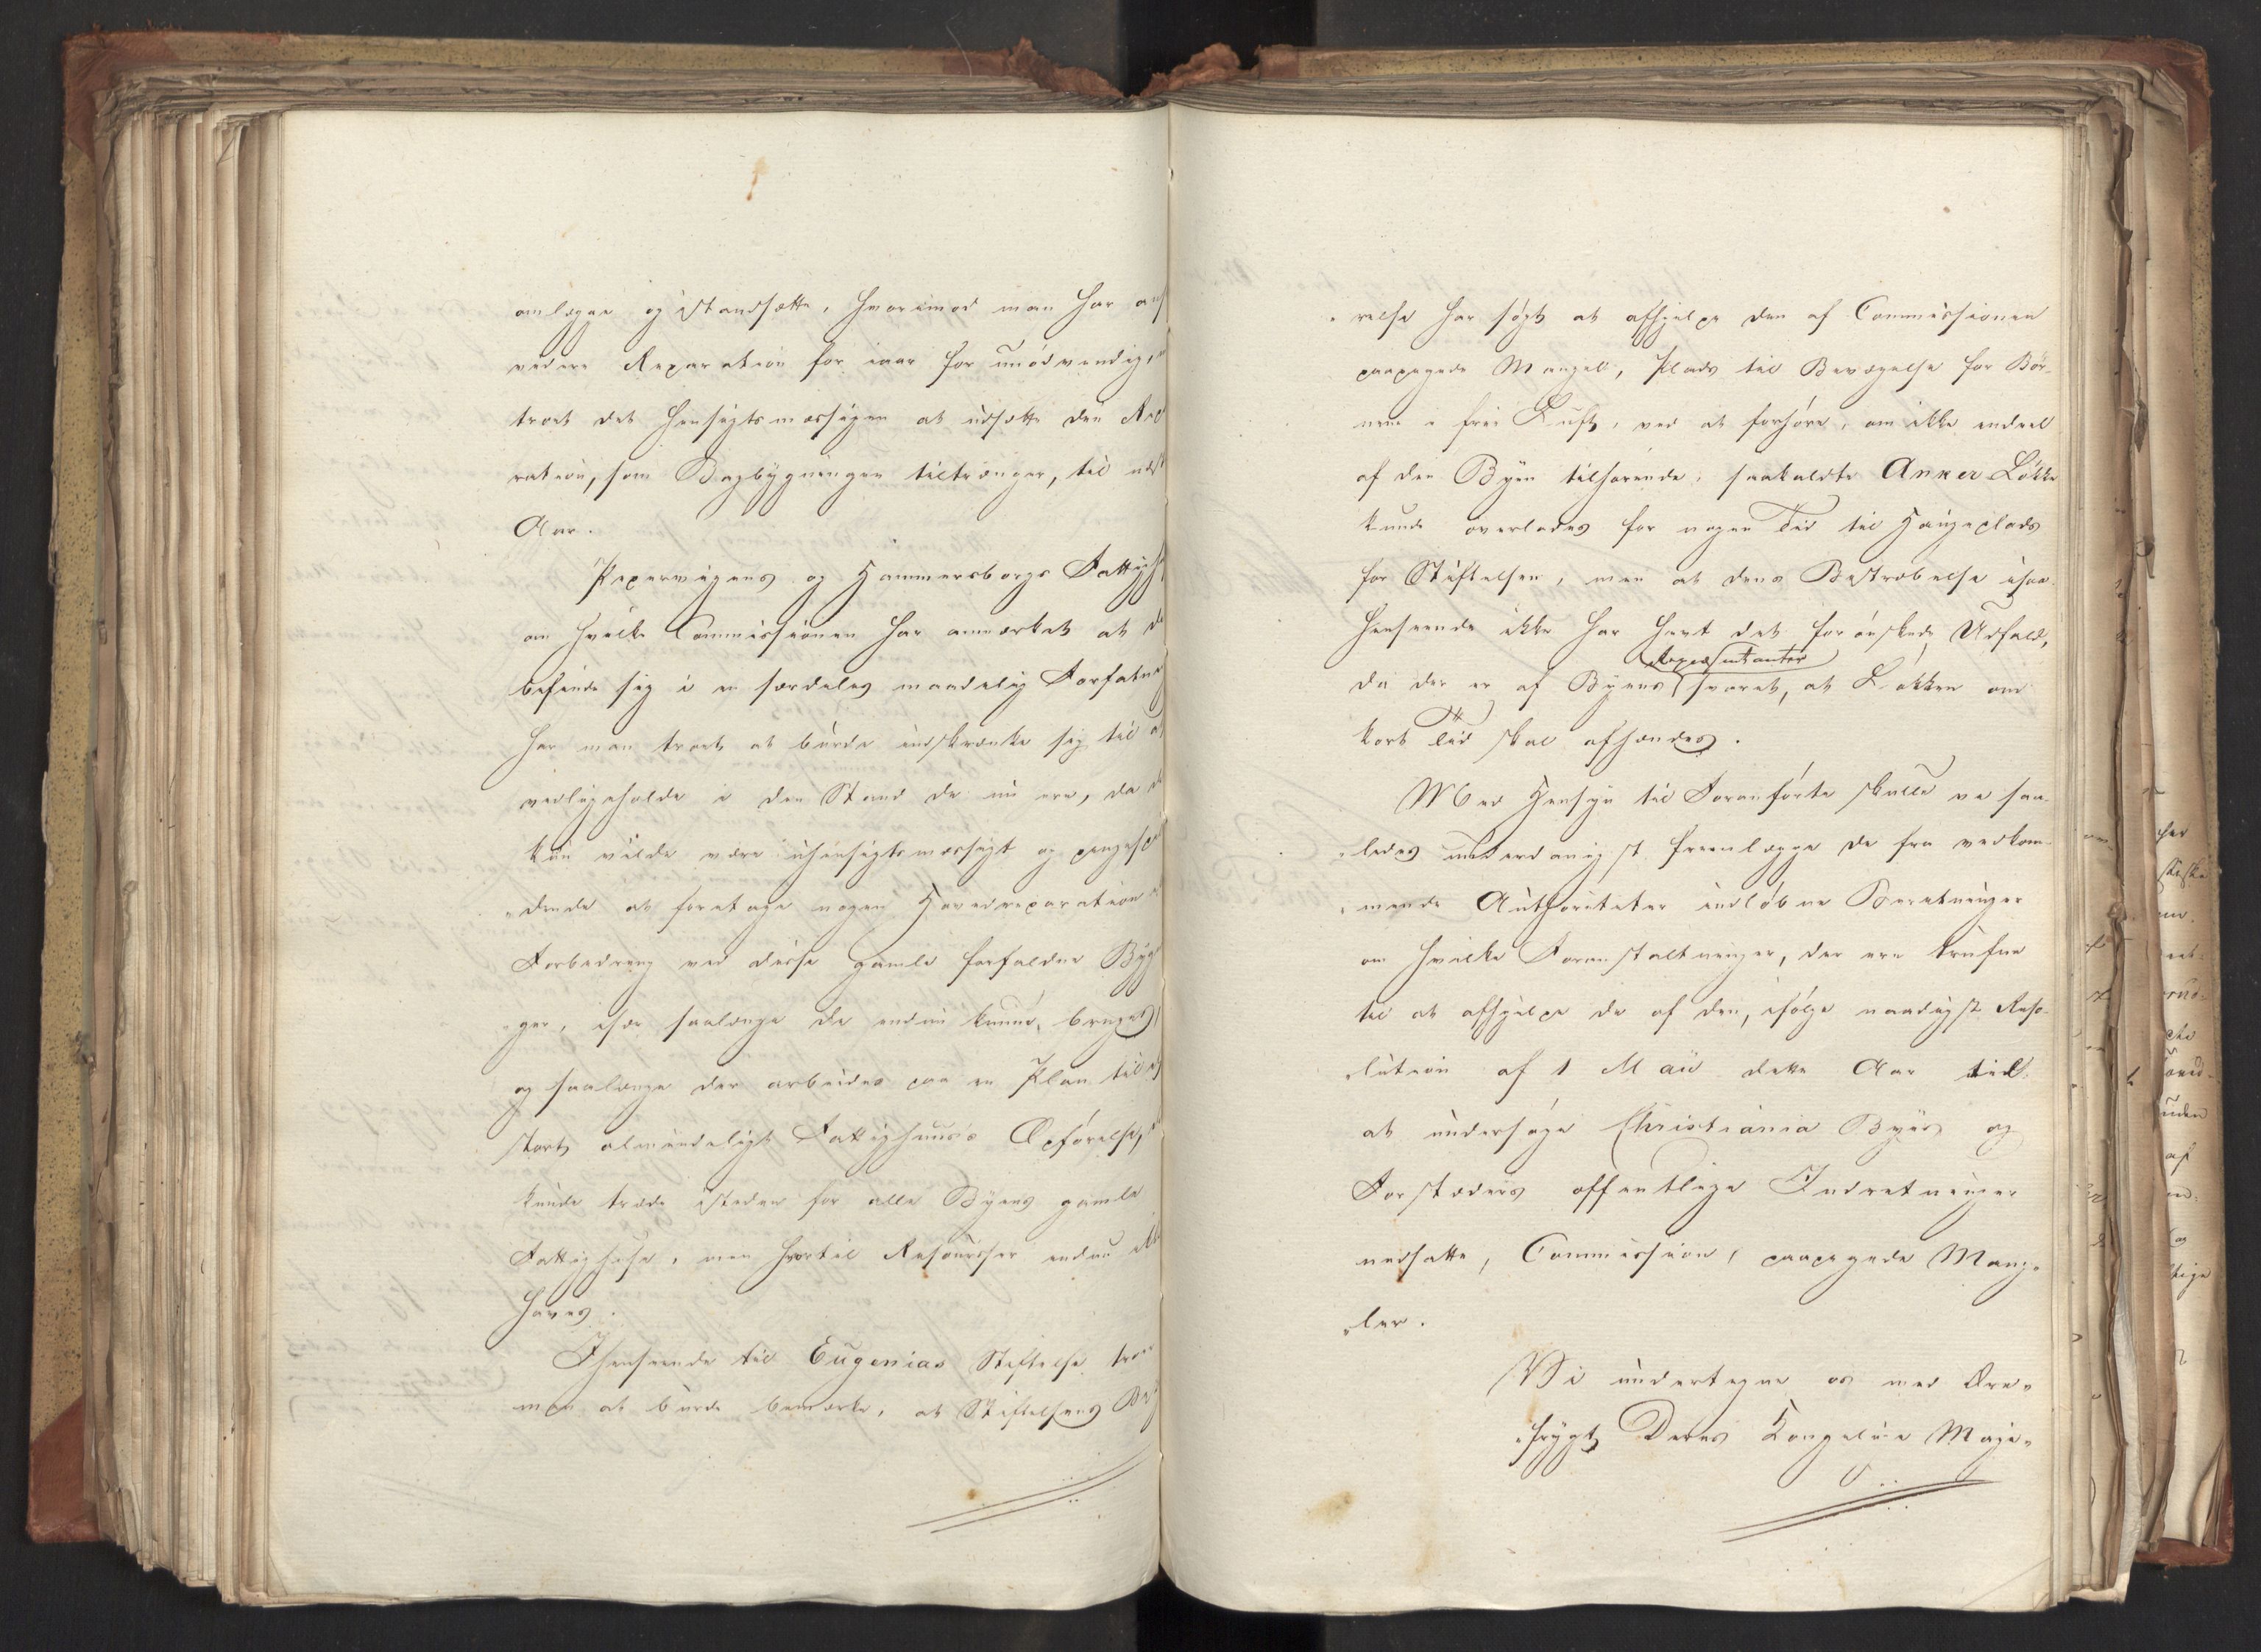 omlægge og istandsætte, hvorimod man har ans
videre Reparation for iaar for unödvendig,
troet det hensigtsmæssigen at udsætte den Re
ration, som Bagbygningen tiltrænger, til næst
Aar.
Pipervigens og Hammersborgs Fattigh
om hvilke Commissionen har anmærket at d
befinde sig i en særdeles maadelig Forfatn
har man troet at burde indskrænke sig til at
vedligeholde i den Stand de nu ere, da d
kun vilde være uhensigtsmæssigt og pengesp
„dende at foretage nogen Hovedreparation
Forbedring ved disse gamle forfaldne Byg
„ger, især saalænge de endnu kunne bruges,
og saalænge der arbeides paa en Plan til et
stort almindeligt Fattighuus's Opförelse,
kunde træde istedet for alle Byens gamle
Fattighuse, men hvortil Resourcer endnu ikk
haves.
Ihenseende til Eugenias Stiftelse troer
man at burde bemærke, at Stiftelsens Best
„relse har sögt at afhjelpe den af Commissionen
paapegede Mangel, Plads til Bevægelse for Bör-
nene i frie Luft, ved at forhöre, om ikke endeel
af den Byen tilhörende, saakaldte Anker Lökke
kunde overlades for nogen Tid til Haugeplads
for Stiftelsen, men at dens Bestræbelse isaa
Henseende ikke har havt det forönskede Udfald,
Repræsentanter
da der er af Byens svaret, at Lökken om
kort Tid skal afhændes.
Med Hensyn til Foranförte skulle vi saa-
„ledes underdanigst fremlægge de fra vedkom-
„mende Authoriteter indlöbne Beretninger
om hvilke Foranstaltninger, der ere trufne
til at afhjelpe de af den, ifölge naadigst Reso-
„lution af 1 Mai dette Aar til
at undersöge Christiania Byes og
Forstæders offentlige Indretninger
nedsatte, Commission, paapegede Mang-
„ler.
Vi undertegne os med Ære-
„frygt Deres Kongelige Maje-